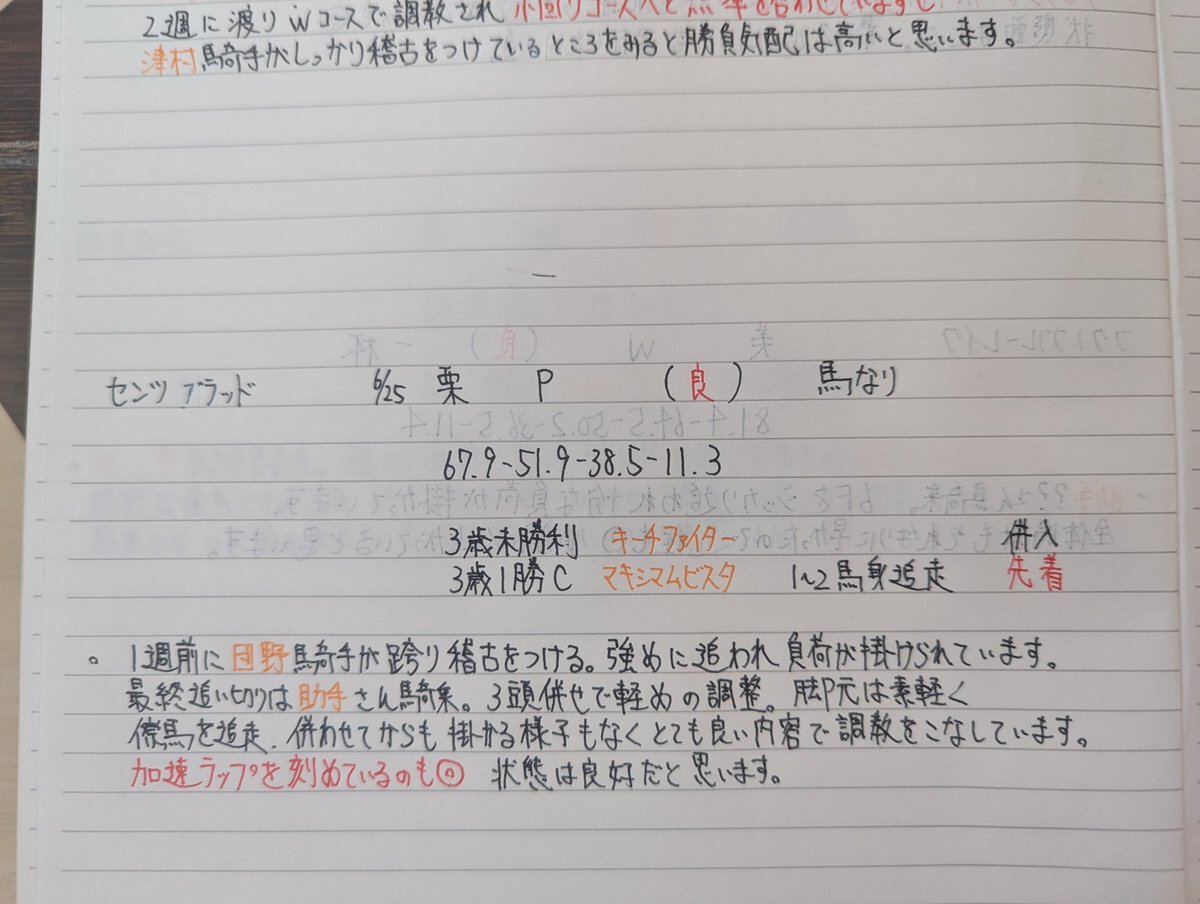 2週に渡りWコースで調教され小回りコースへと照準を合わせていますし
津村騎手がしっかり稽古をつけているところをみると勝負気配は高いと思います。
センツブラッド 6/25 栗 P (良) 馬なり
67.9-51.9-38.5-11.3
3歳未勝利 キーチファイター 併入
3歳1勝C マキシマムビスタ 1~2馬身追走 先着
。1週前に団野騎手が跨り稽古をつける。強めに追われ負荷が掛けられています。
最終追い切りは助手さん騎乗。3頭併せで軽めの調整。脚元は素軽く
僚馬を追走、併わせてからも掛かる様子もなくとても良い内容で調教をこなしています。
加速ラップを刻めているのも◎ 状態は良好だと思います。